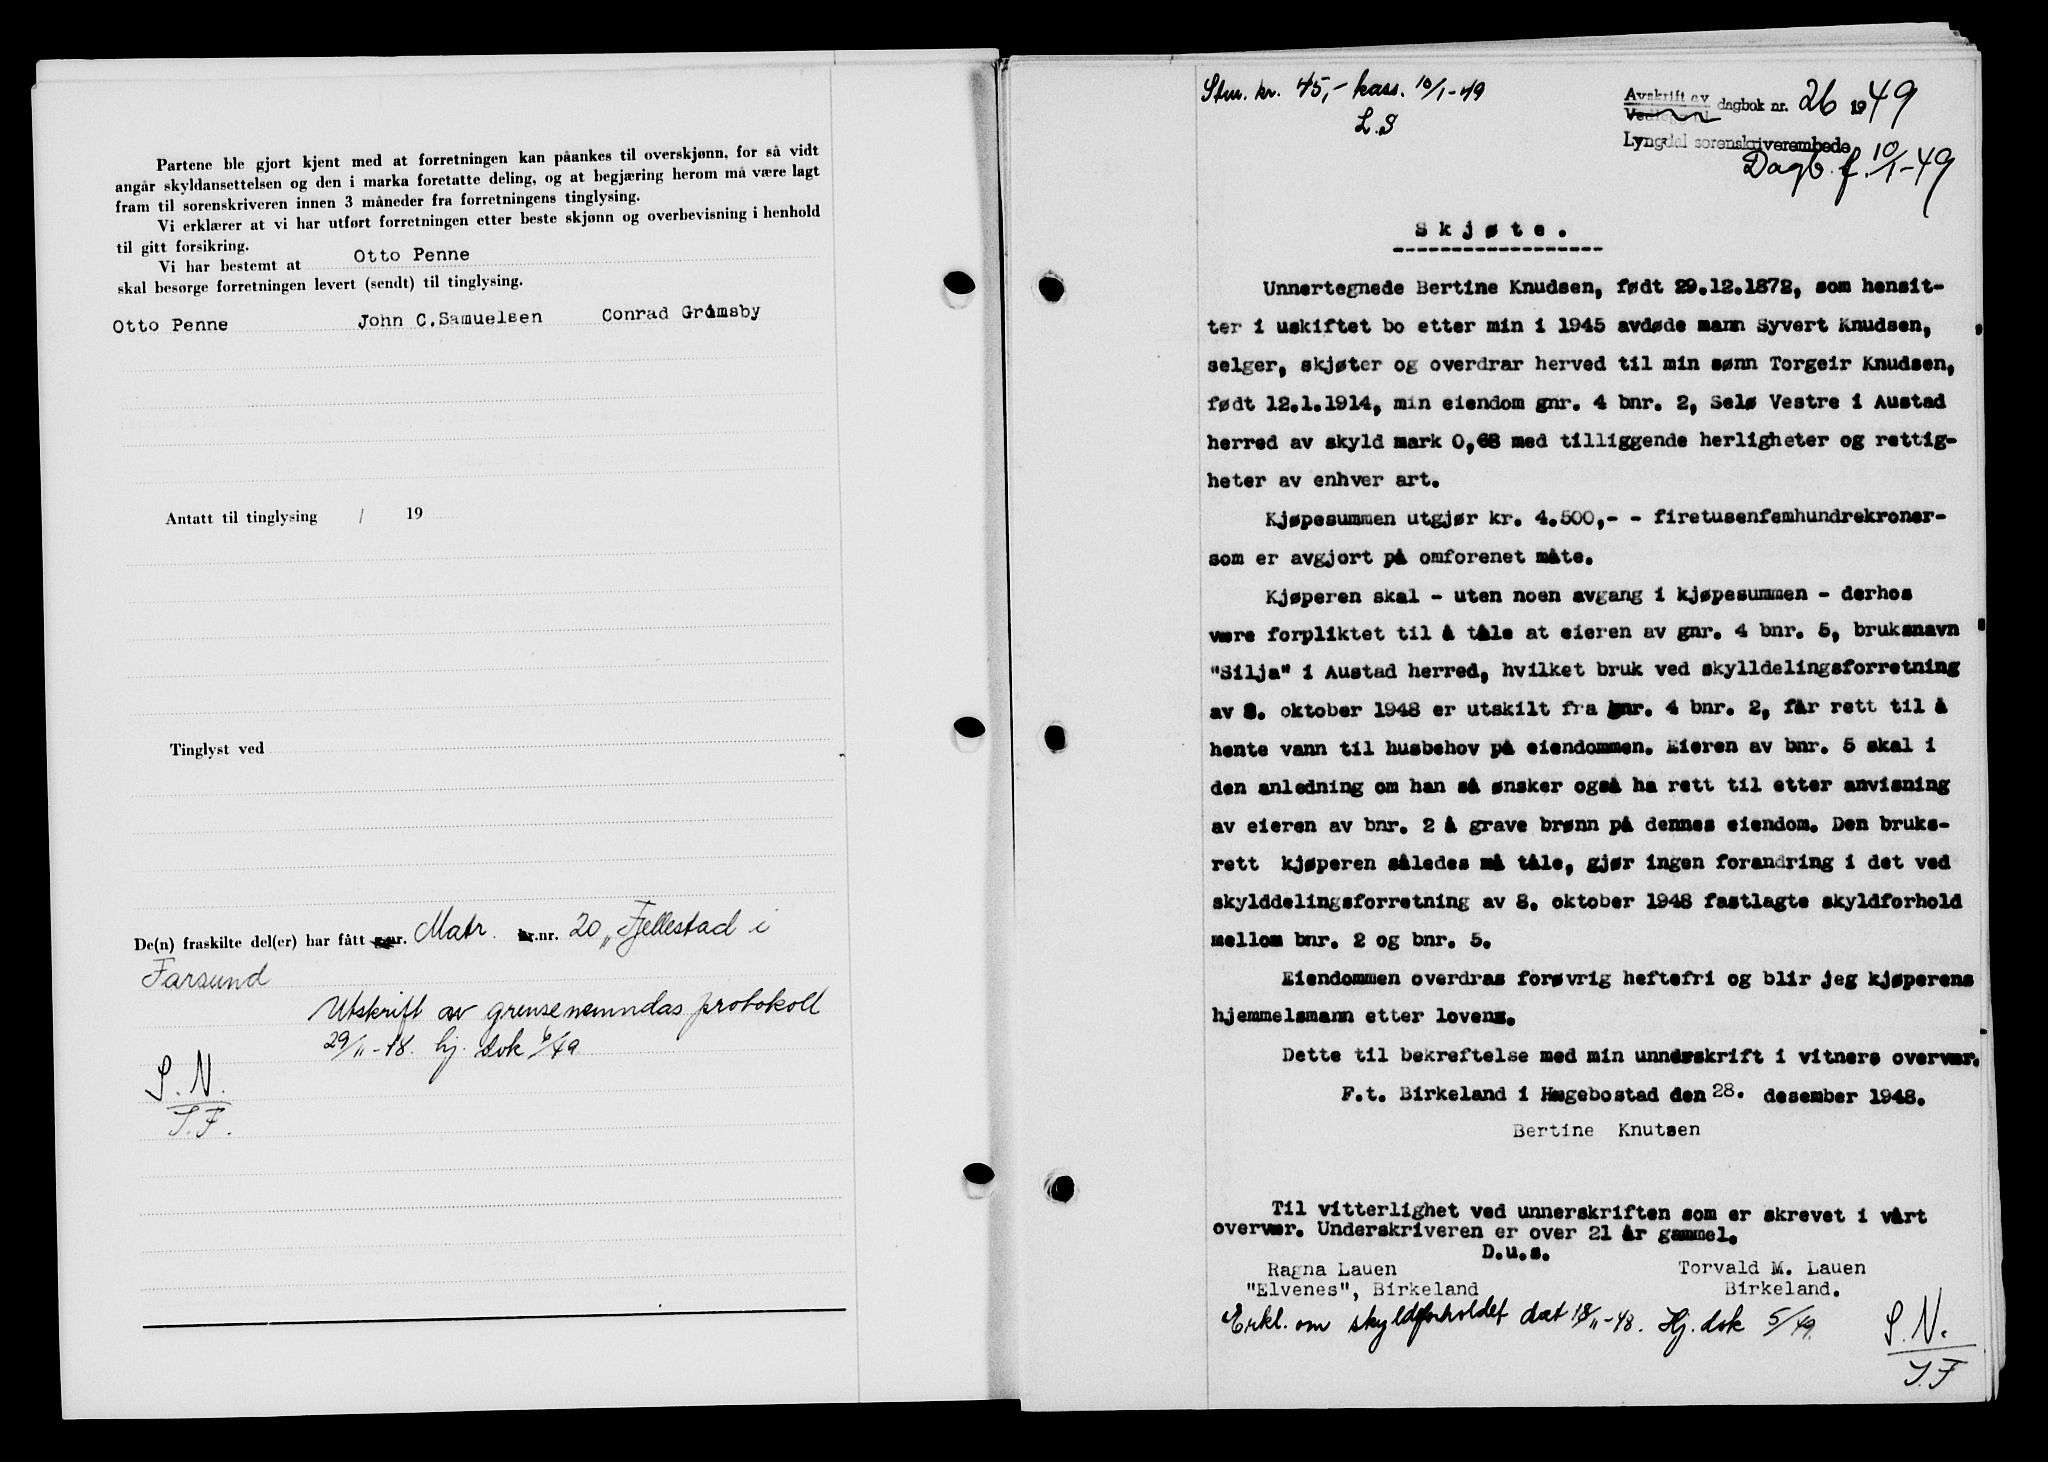 Partene ble gjort kjent med at forretningen kan påankes til overskjønn, for så vidt
angår skyldansettelsen og den i marka foretatte deling, og at begjæring herom må være lagt
fram til sorenskriveren innen 3 måneder fra forretningens tinglysing.
Vi erklærer at vi har utført forretningen etter beste skjønn og overbevisning i henhold
til gitt forsikring.
Vi har bestemt at Otto Penne
skal besørge forretningen levert (sendt) til tinglysing.
Otto Penne John C. Samuelsen Conrad Grimsby
Antatt til tinglysing / 19
Tinglyst ved
De(n) fraskilte del(er) har fått gnr. Matr. br.nr. 20 „Fjellestad i
Farsund
Utskrift av grensenemndas protokoll
29/11-48. hj. dok 6/49
S.N.
T.F.
Stm. kr. 45,- kass. 10/1-49
L.S
Avskrift av
Vedlegg til
dagbok nr. 26 1949
Lyngdal sorenskriverembede
Dagb. f. 10/1-49
Skjøte.
Unnertegnede Bertine Knudsen, født 29.12.1872, som hensit-
ter i uskiftet bo etter min i 1945 avdøde mann Syvert Knudsen,
selger, skjøter og overdrar herved til min sønn Torgeir Knudsen,
født 12.1.1914, min eiendom gnr. 4 bnr. 2, Selø Vestre i Austad
herred av skyld mark 0,68 med tilliggende herligheter og rettig-
heter av enhver art.
Kjøpesummen utgjør kr. 4.500,- - firetusenfemhundrekroner-
som er avgjort på omforenet måte.
Kjøperen skal - uten noen avgang i kjøpesummen - derhos
være forpliktet til å tåle at eieren av gnr. 4 bnr. 5, bruksnavn
"Silja" i Austad herred, hvilket bruk ved skylldelingsforretning
av 8. oktober 1948 er utskilt fra gnr. 4 bnr. 2, får rett til å
hente vann til husbehov på eiendommen. Eieren av bnr. 5 skal i
den anledning om han så ønsker også ha rett til etter anvisning
av eieren av bnr. 2 å grave brønn på dennes eiendom. Den bruks-
rett kjøperen således må tåle, gjør ingen forandring i det ved
skylddelingsforretning av 8. oktober 1948 fastlagte skyldforhold
mellom bnr. 2 og bnr. 5.
Eiendommen overdras forøvrig heftefri og blir jeg kjøperens
hjemmelsmann etter lovens.
Dette til bekreftelse med min unnerskrift i vitners overvær.
F.t. Birkeland i Hægebostad den 28. desember 1948.
Bertine Knutsen
Til vitterlighet ved unnerskriften som er skrevet i vårt
overvær. Underskriveren er over 21 år gammel.
D.u.s.
Ragna Lauen Torvald M. Lauen
"Elvenes", Birkeland Birkeland.
Erkl. om skyldforholdet dat 18/11-48. Hj. dok 5/49.
S.N.
T.F